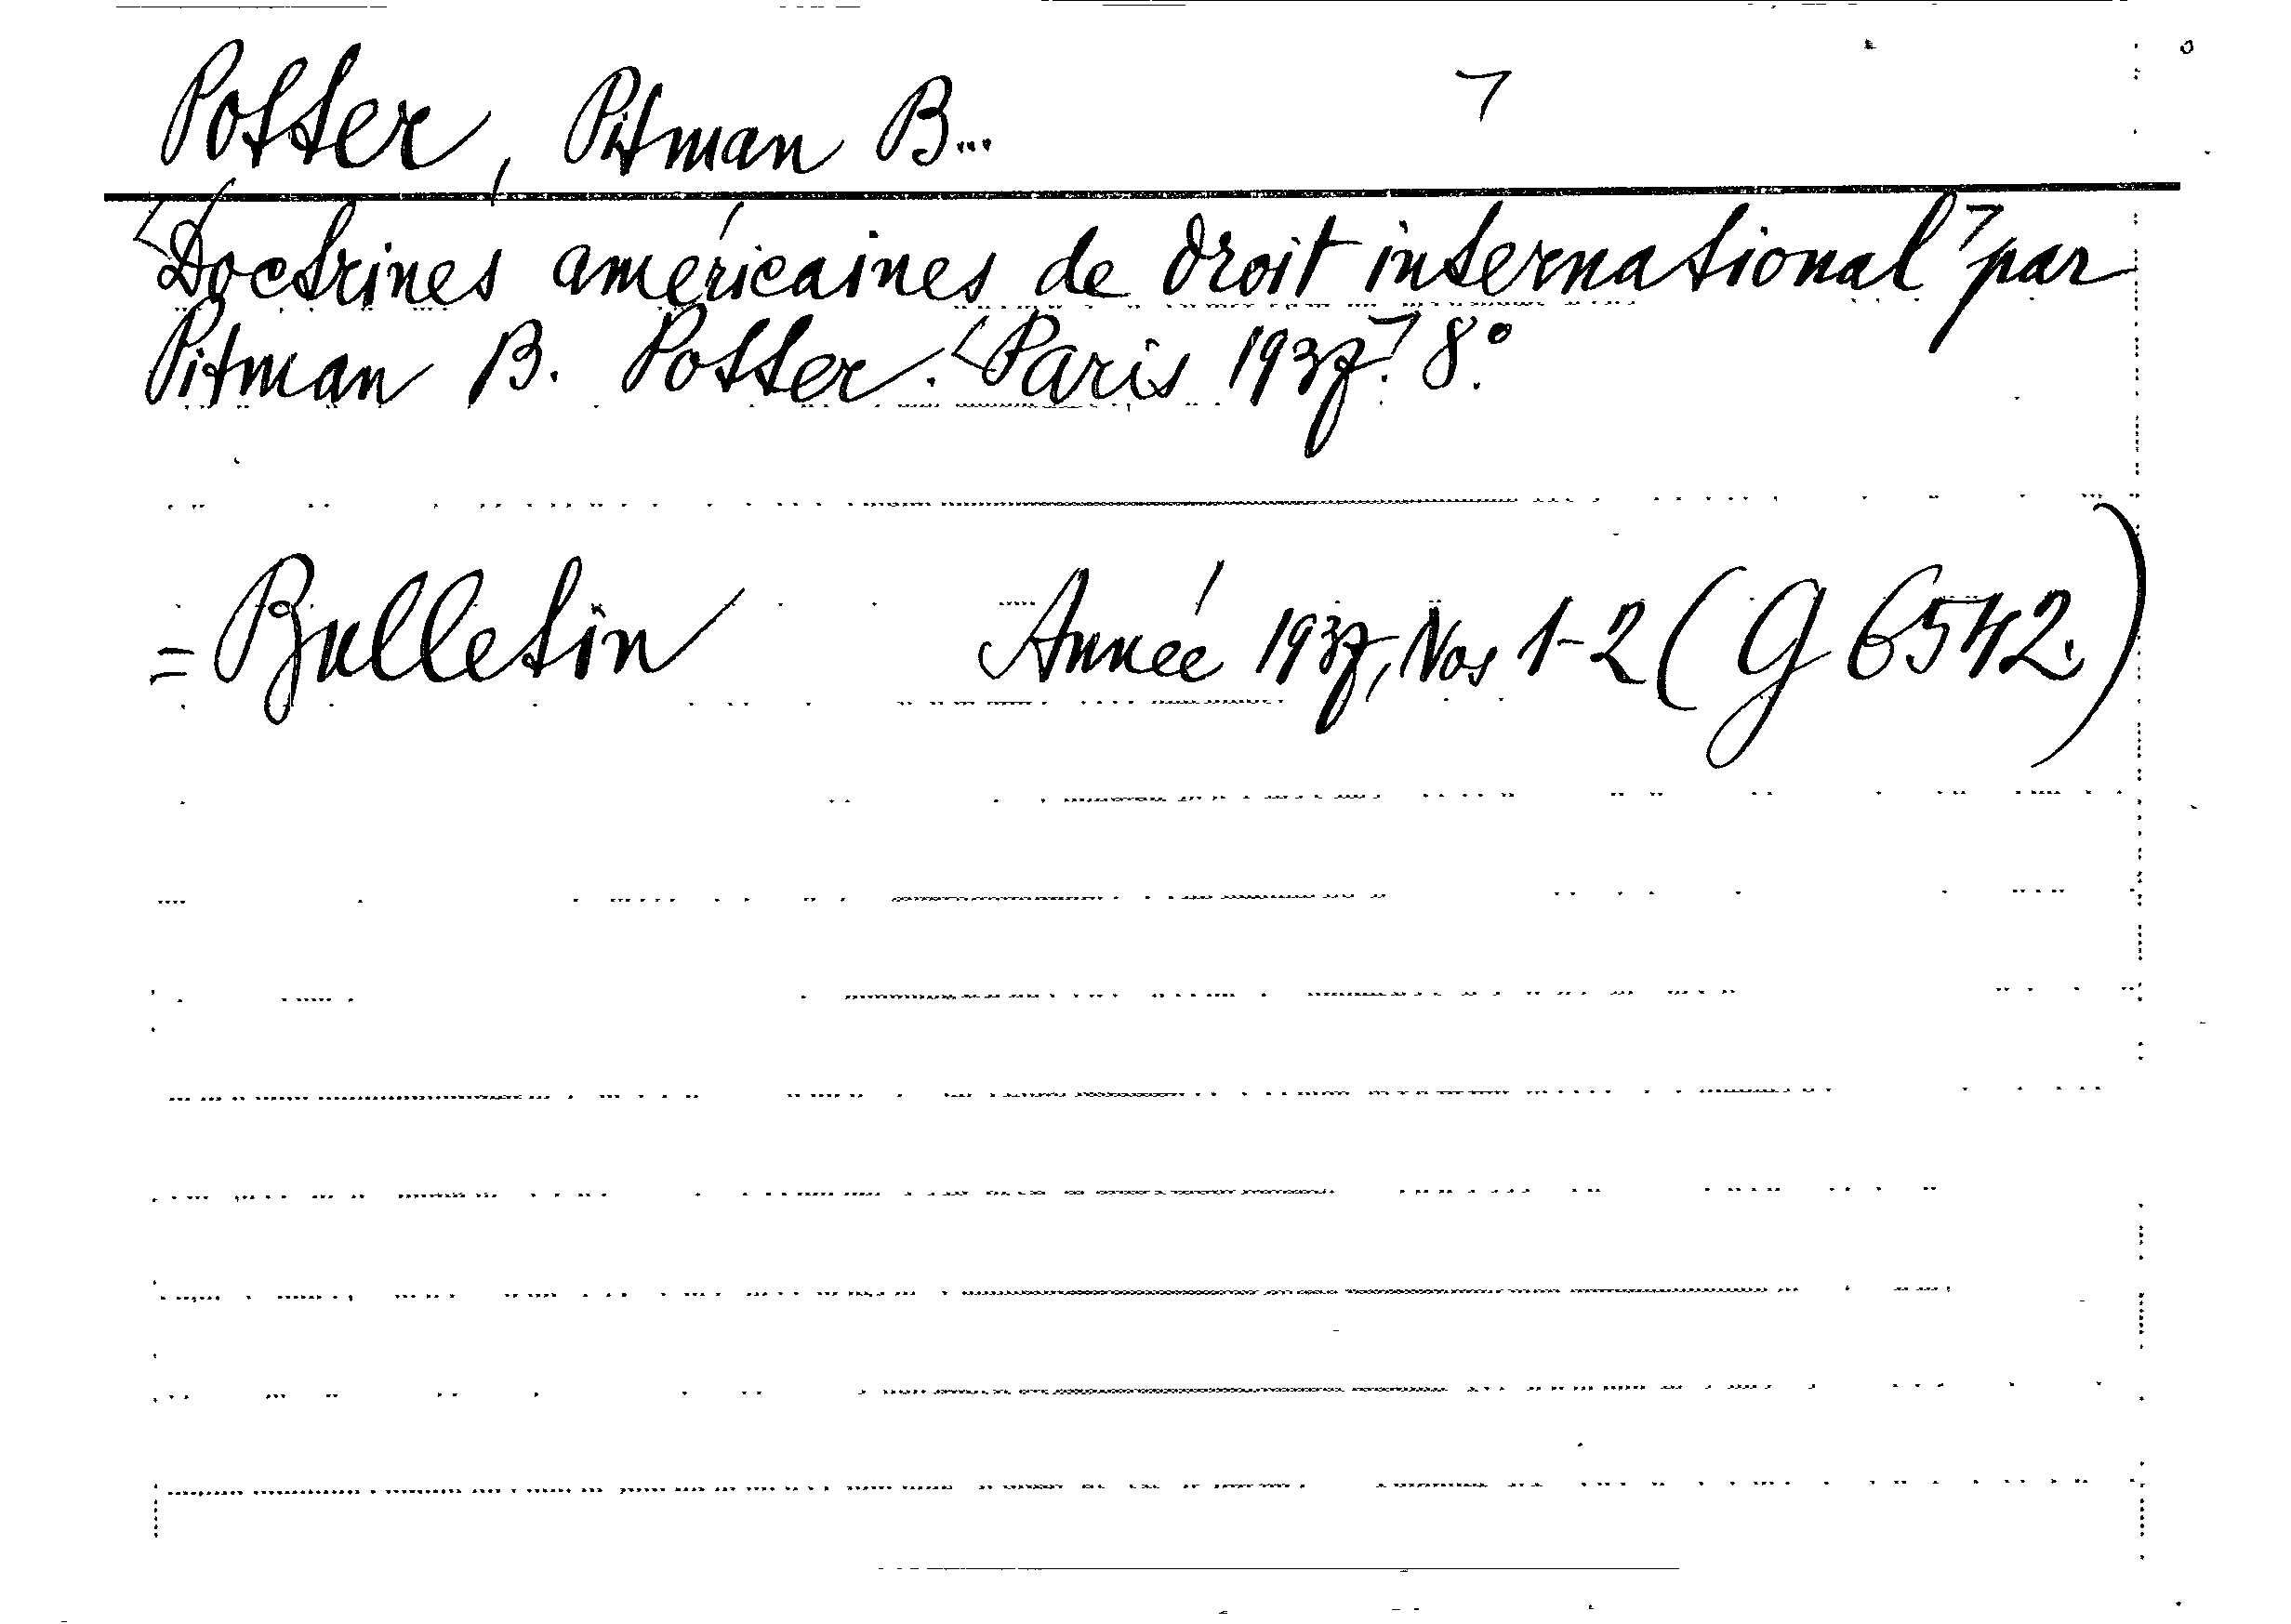 Potter, Pitman B... ⌝
⌜Doctrines américaines de droit international⌝ par
Pitman B. Potter. ⌜Paris 1937⌝. 8º.
= Bulletin Année 1937, Nos 1-2 (G 6542.)